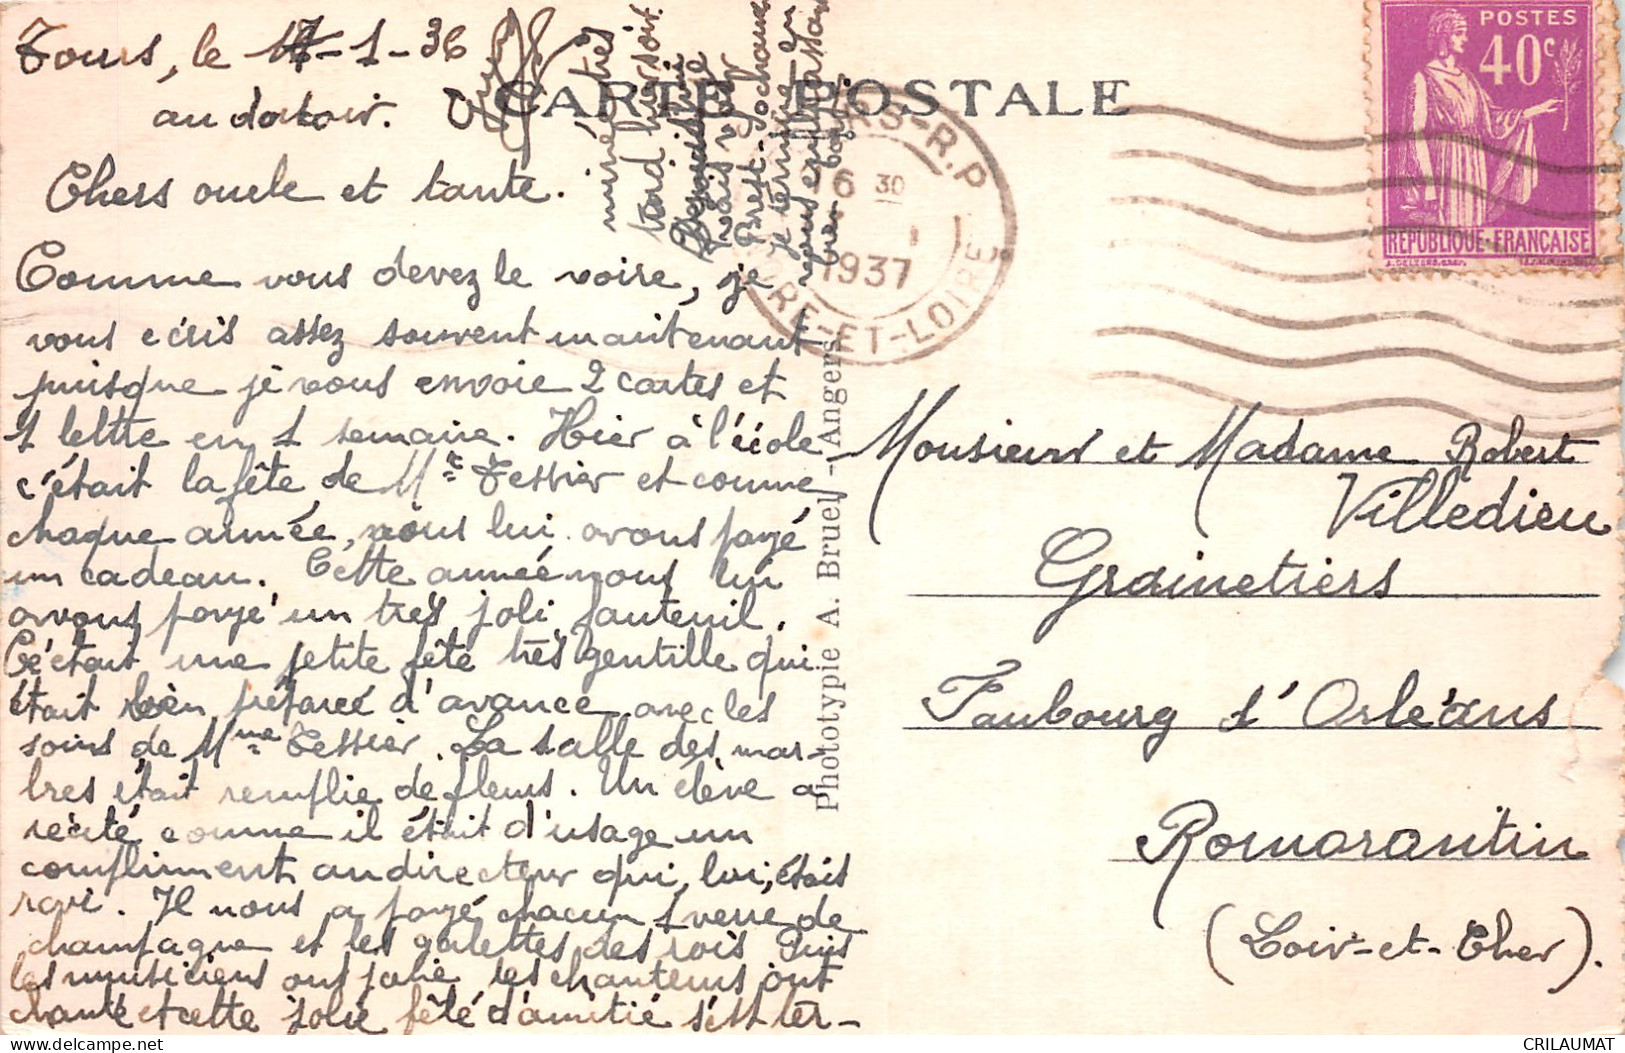 Tours, le 17-1-36
au dortoir.
CARTE POSTALE
Chers oncle et tante.
Comme vous devez le voire, je
vous écris assez souvent maintenant
puisque je vous envoie 2 cartes et
1 lettre en 1 semaine. Hier à l'école
c'était la fête de Mr Tessier et comme
chaque année, nous lui avons payé
un cadeau. Cette année nous lui
avons payé un très joli fauteuil.
C'était une petite fête très gentille qui
était bien préparée d'avance avec les
soins de Mme Tessier. La salle des mar-
bres était remplie de fleurs. Un élève a
récité comme il était d'usage un
compliment au directeur qui, lui, étais
ravi. Il nous a payé chacun 1 verre de
champagne et les galettes des rois Puis
les musiciens ont joué les chanteurs ont
chanté et cette jolie fête d'amitié s'est ter-
minée très
tard hier soir.
Aujourd'hui
je vais voir
Brest-Sochaux
je termine en
vous embrassant
bien
POSTES
40c
REPUBLIQUE-FRANÇAISE
TOURS-R.P
16 30
1
1937
INDRE-ET-LOIRE
Phototypie A. Bruel - Angers
Monsieur et Madame Robert
Villedieu
Grainetiers
Faubourg d'Orléans
Romorantin
(Loir-et-Cher).
CRILAUMAT